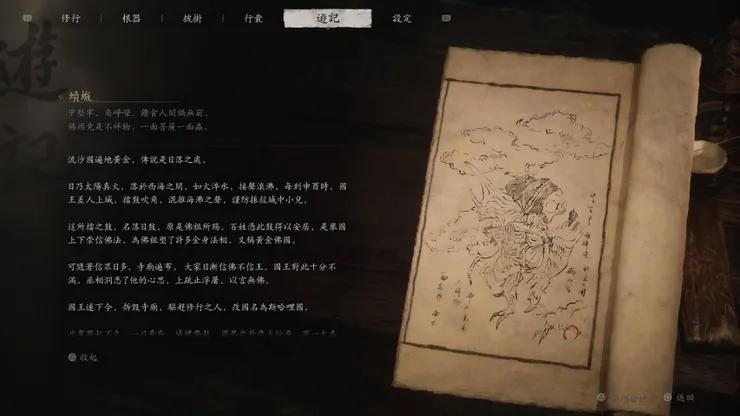 修行
根器
披掛
行囊
遊記
設定
遊記
甲堅牢,角崢嶸,饞食人間禍無窮。
佛頭竟是不祥物,一面菩薩一面蟲。
流沙國遍地黃金,傳說是日落之處。
日乃太陽真火,落於西海之間,如火淬水,接聲滾沸。每到申酉時,國
王差人上城,擂鼓吹角,混雜海沸之聲,謹防振殺城中小兒。
這所擂之鼓,名落日鼓,原是佛祖所賜。百姓憑此鼓得以安居,是舉國
上下崇信佛法,為佛祖塑了許多金身法相,又稱黃金佛國。
可隨著信眾日多,寺廟遍布,大家日漸信佛不信王。國王對此十分不
滿。丞相洞悉了他的心思,上疏止浮屠,以言無佛。
國王遂下令,拆毀寺廟,驅趕修行之人,改國名為斯哈哩國。
收起
返回